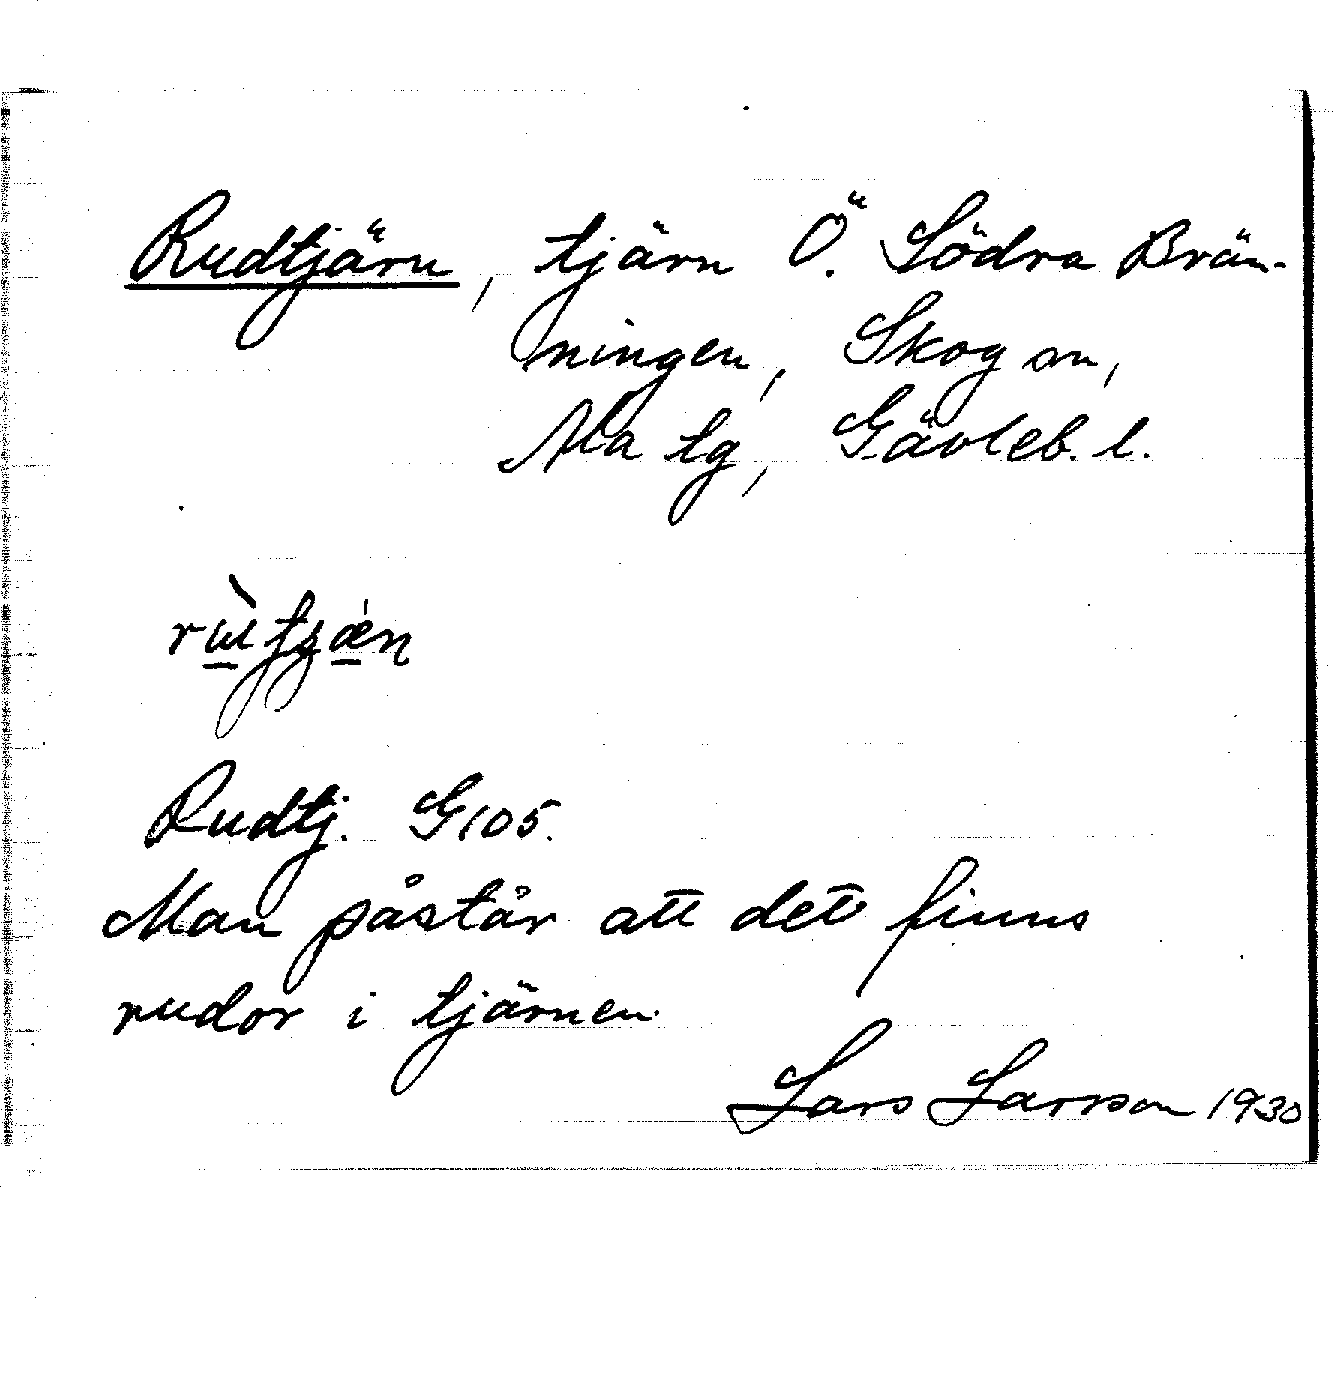 Rudtjärn, tjärn Ö. Södra Brän-
ningen, Skog sn,
Ala tg, Gävleb. l.
Rudtj. G 105.
Man påstår att det finns
rudor i tjärnen.
Lars Larsson 1930